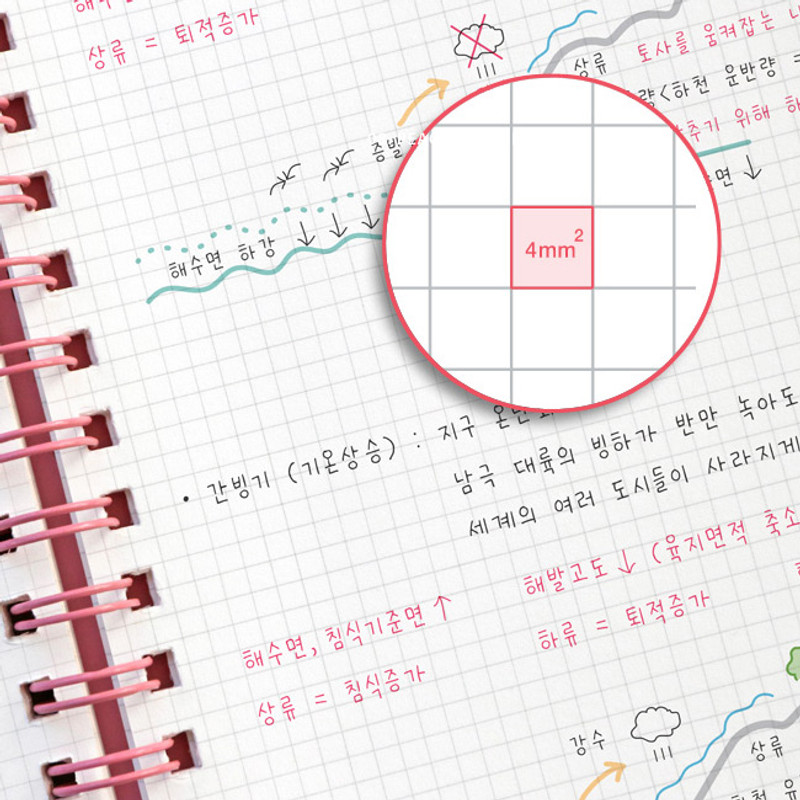 상류 = 퇴적증가
상류 토사를 움켜잡는
량<하천 운반량 =
추기 위해 하
증발
면 ↓
해수면 하강 ↓ ↓ ↓
4mm²
• 간빙기 (기온상승) : 지구
남극 대륙의 빙하가 반만 녹아도
세계의 여러 도시들이 사라지게
해발고도 ↓ (육지면적 축소
하류 = 퇴적증가
해수면, 침식기준면 ↑
상류 = 침식증가
강수
상류